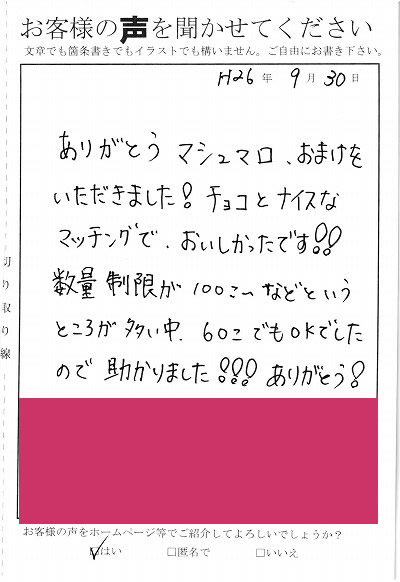 お客様の声を聞かせてください
文章でも箇条書きでもイラストでも構いません。ご自由にお書き下さい。
H26年 9月 30日
ありがとう マシュマロ、おまけを
いただきました! チョコとナイスな
マッチングで、おいしかったです!!
数量制限が 100コ〜などという
ところが多い中、60コでもOKでした
ので 助かりました!!! ありがとう!
切り取り線
お客様の声をホームページ等でご紹介してよろしいでしょうか?
☑はい □匿名で □いいえ